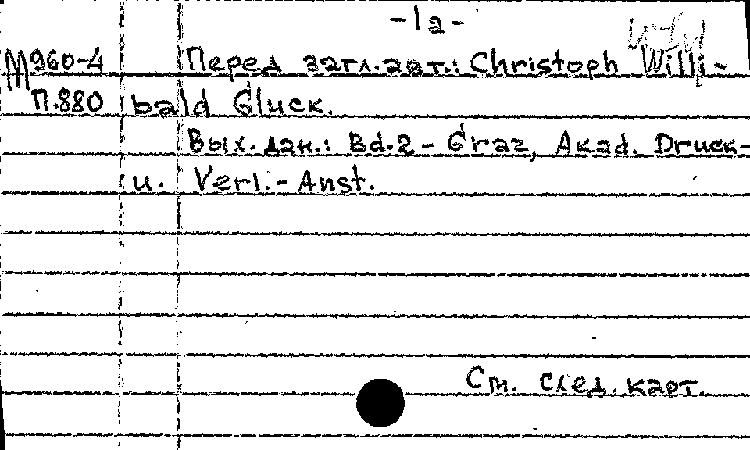 -1а-
М960-4 Перед загл.авт.: Christoph Willi-
П.880 bald Gluck.
Вых.дан.: Bd.2 - Graz, Akad. Druck-
u. Verl.-Anst.
См. след. карт.